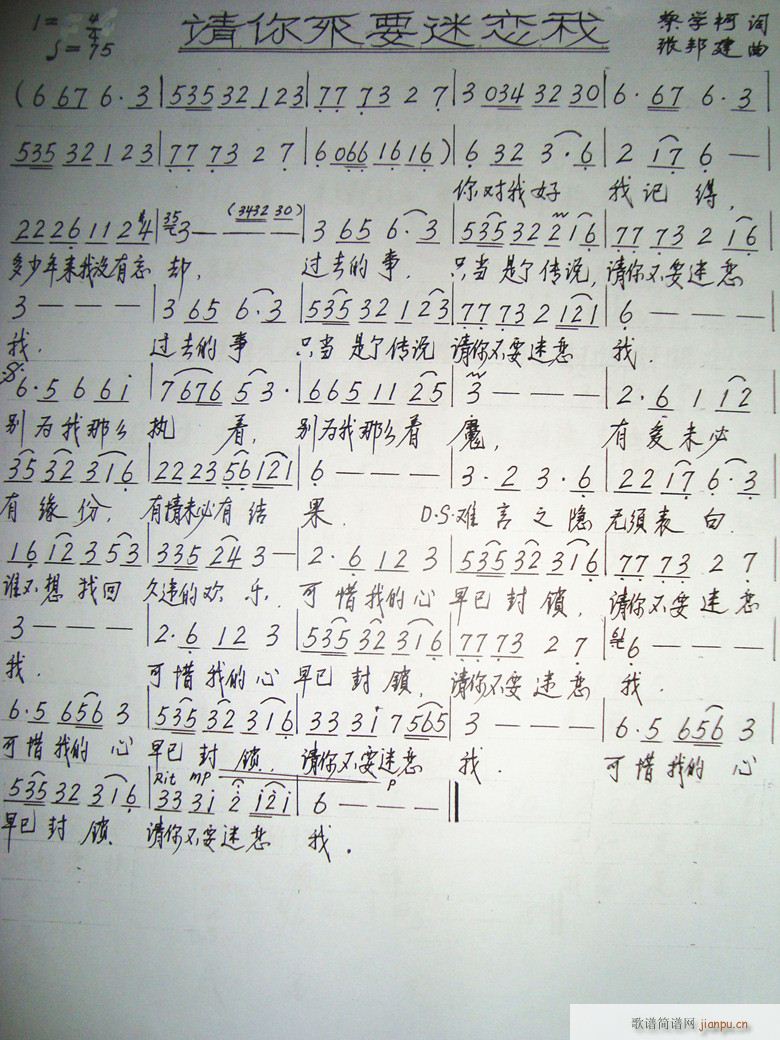 1= 4/4
♩=75
請你不要迷恋我
蔡学柯 词
张邦建 曲
(6 67 6·3 | 535 32 123 | 77 73 2 7 | 3 034 32 30 | 6·67 6·3
535 32 123 | 77 73 2 7 | 6 066 1616) | 6 32 3·6 | 2 17 6 —
你对我好 我记得,
2226 112 4 | 35 3 — — (3432 30) | 3 65 6·3 | 535 32 216 | 77 73 2 16
多少年来我没有忘却, 过去的事, 只当是了传说, 请你不要迷恋
3 — — — | 3 65 6·3 | 535 32 123 | 77 73 2 121 | 6 — — —
我. 过去的事 只当是了传说 请你不要迷恋 我.
6·5 6 61 | 7676 53· | 665 11 25 | 3 — — — | 2·6 1 12
别为我那么执着, 别为我那么着魔, 有爱未必
35 32 316 | 22 23 56 121 | 6 — — — | 3·2 3·6 | 22 17 6·3
有缘份, 有情未必有结果. D.S.难言之隐 无须表白.
16 12 3 53 | 335 24 3 — | 2·6 12 3 | 535 32 316 | 77 73 2 7
谁不想找回 久违的欢乐. 可惜我的心 早已封锁, 请你不要迷恋
3 — — — | 2·6 12 3 | 535 32 316 | 77 73 2 7 | 6 — — —
我. 可惜我的心 早已封锁, 请你不要迷恋 我.
6·5 656 3 | 535 32 316 | 33 31 7 565 | 3 — — — | 6·5 656 3
可惜我的心 早已封锁, 请你不要迷恋 我. 可惜我的心
Rit mp p
535 32 316 | 33 31 2 121 | 6 — — —
早已封锁. 请你不要迷恋 我.
歌谱简谱网 jianpu.cn